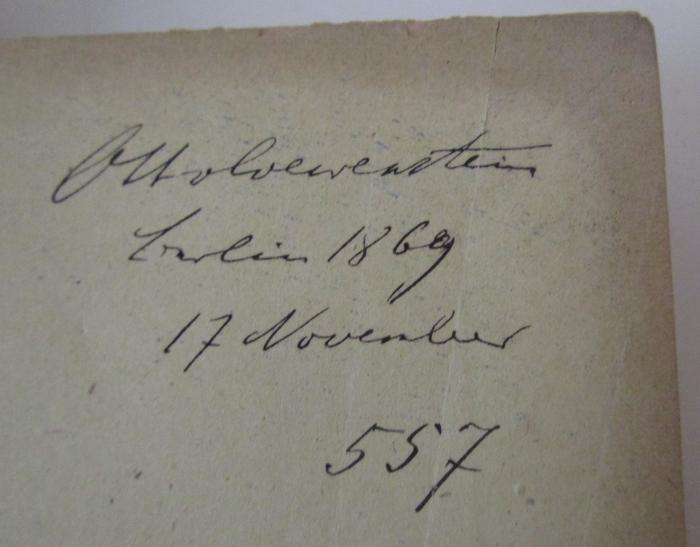 Otto Loewenstein
Berlin 1869
17 November
557